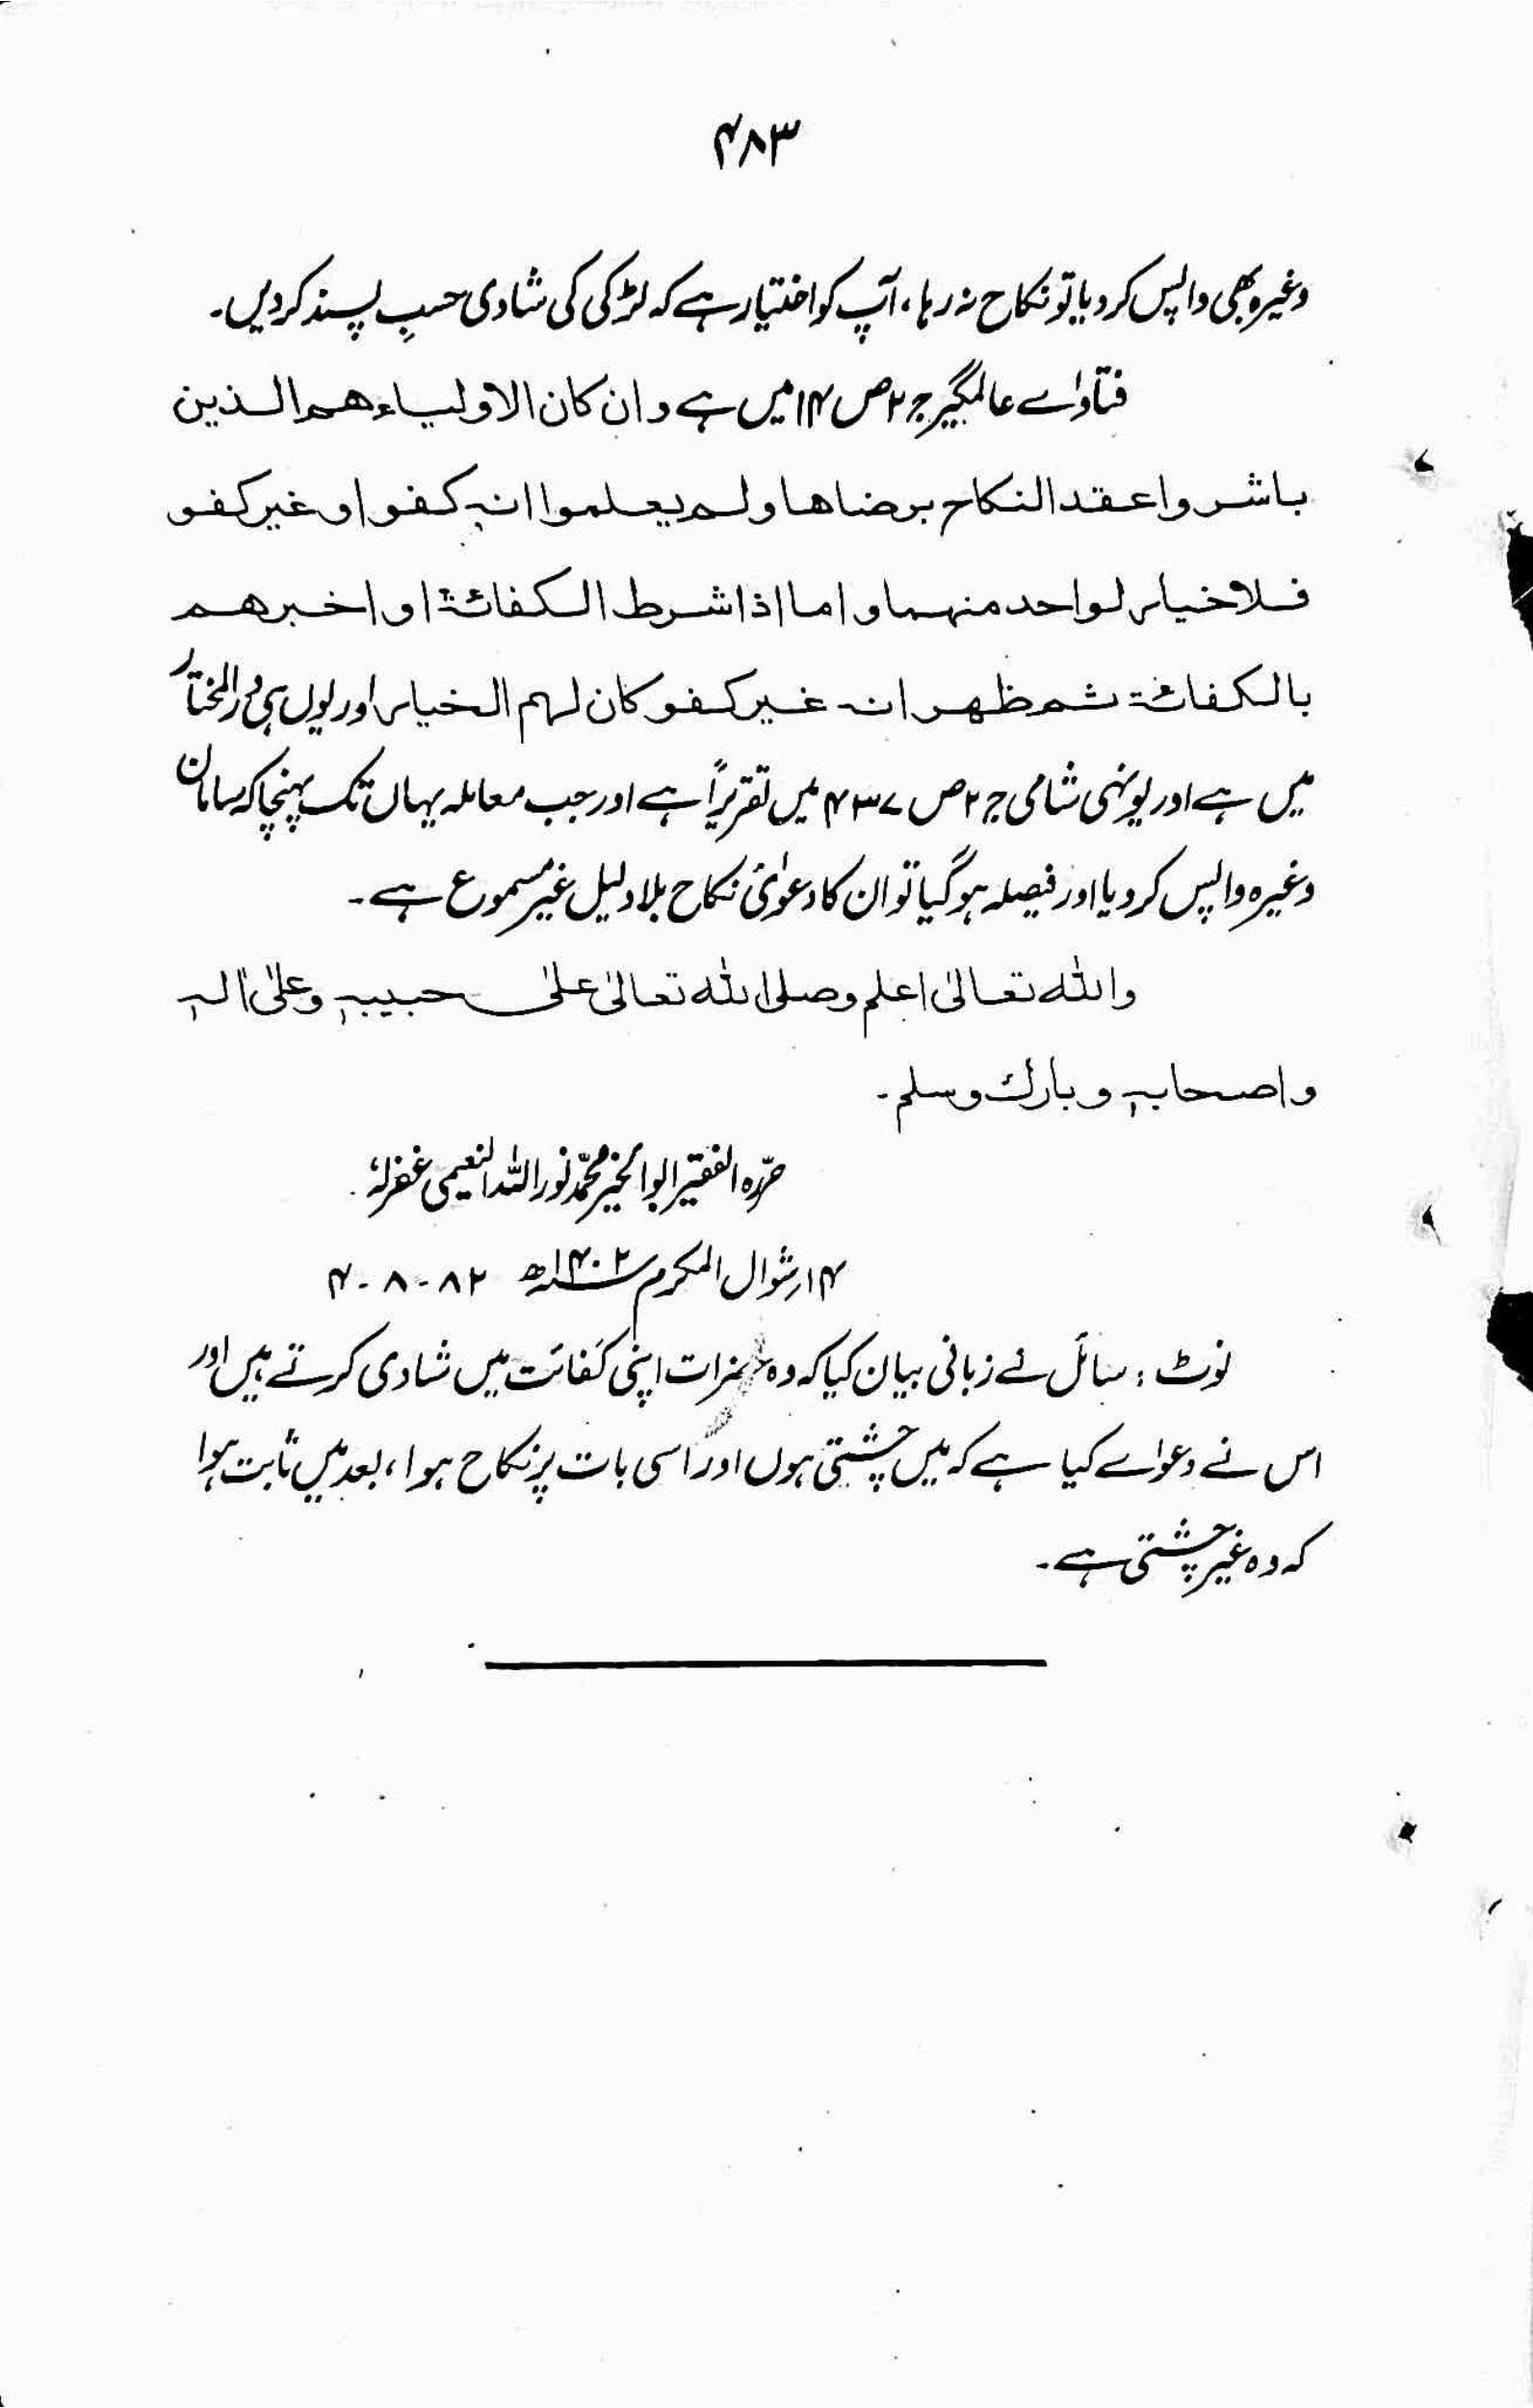 ۴۸۳
وغیرہ بھی واپس کر دیا تو نکاح نہ رہا، آپ کو اختیار ہے کہ لڑکی کی شادی حسبِ پسند کر دیں۔
فتاوٰے عالمگیر ج ۲ ص ۱۴ میں ہے وان کان الاولیاء ھم الذین
باشروا عقد النکاح برضاھا ولم یعلموا انہ کفو او غیر کفو
فلا خیار لواحد منہما واما اذا شرط الکفائۃ او اخبرھم
بالکفائۃ ثم ظھر انہ غیر کفو کان لہم الخیار اور یوں ہی در المختار
میں ہے اور یونہی شامی ج ۲ ص ۴۳۷ میں تقریراً ہے اور جب معاملہ یہاں تک پہنچا کہ سامان
وغیرہ واپس کر دیا اور فیصلہ ہو گیا تو ان کا دعوٰئ نکاح بلا دلیل غیر مسموع ہے۔
واللہ تعالیٰ اعلم وصلی اللہ تعالیٰ علیٰ حبیبہٖ وعلیٰ اٰلہٖ
واصحابہٖ وبارك وسلم۔
حررہ الفقیر ابو الخیر محمد نور اللہ النعیمی غفرلہٗ
۱۴ر شوال المکرم ۱۴۰۲ھ ۸۲-۸-۴
نوٹ: سائل نے زبانی بیان کیا کہ وہ حضرات اپنی کفائت میں شادی کرتے ہیں اور
اس نے دعوٰے کیا ہے کہ میں چشتی ہوں اور اسی بات پر نکاح ہوا، بعد میں ثابت ہوا
کہ وہ غیر چشتی ہے۔